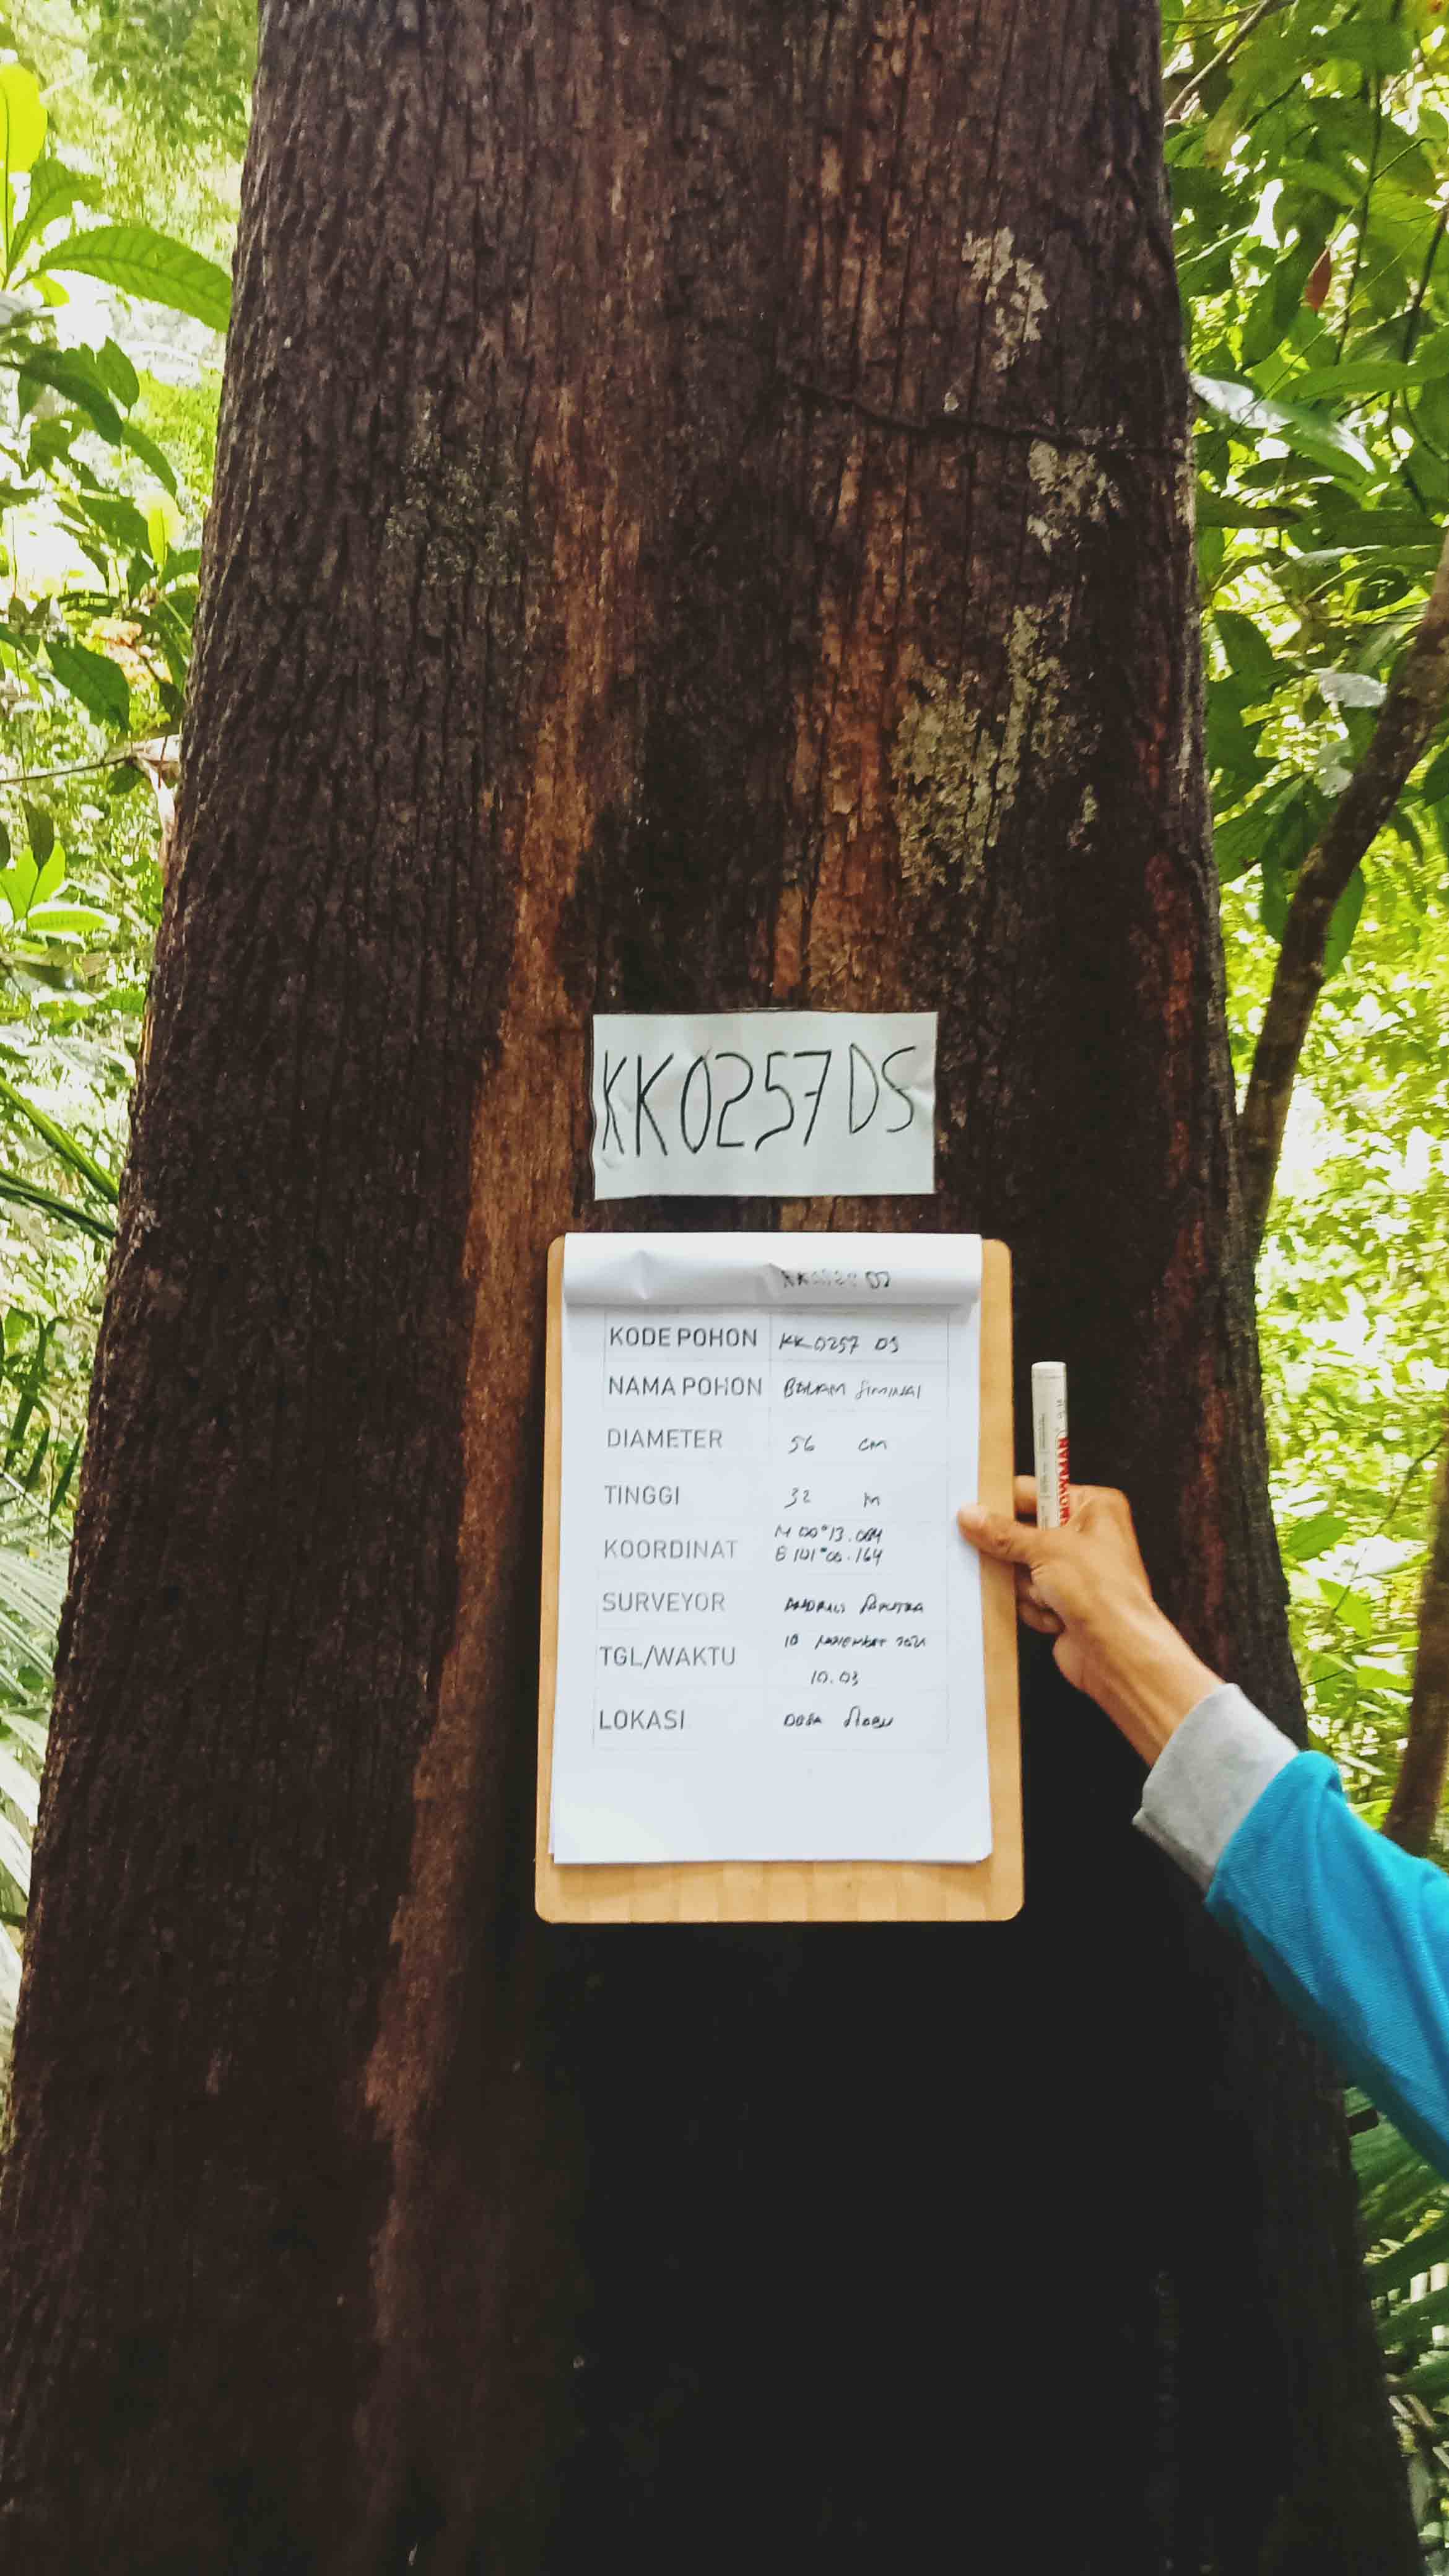 KK0257DS
KODE POHON KK0257 DS
NAMA POHON BALAM SIMINAI
DIAMETER 56 cm
TINGGI 32 M
KOORDINAT N 00°13.084
E 101°00.164
SURVEYOR SAPUTRA
TGL/WAKTU 10 NOVEMBER 2021
10.03
LOKASI DESA
SNOWMAN